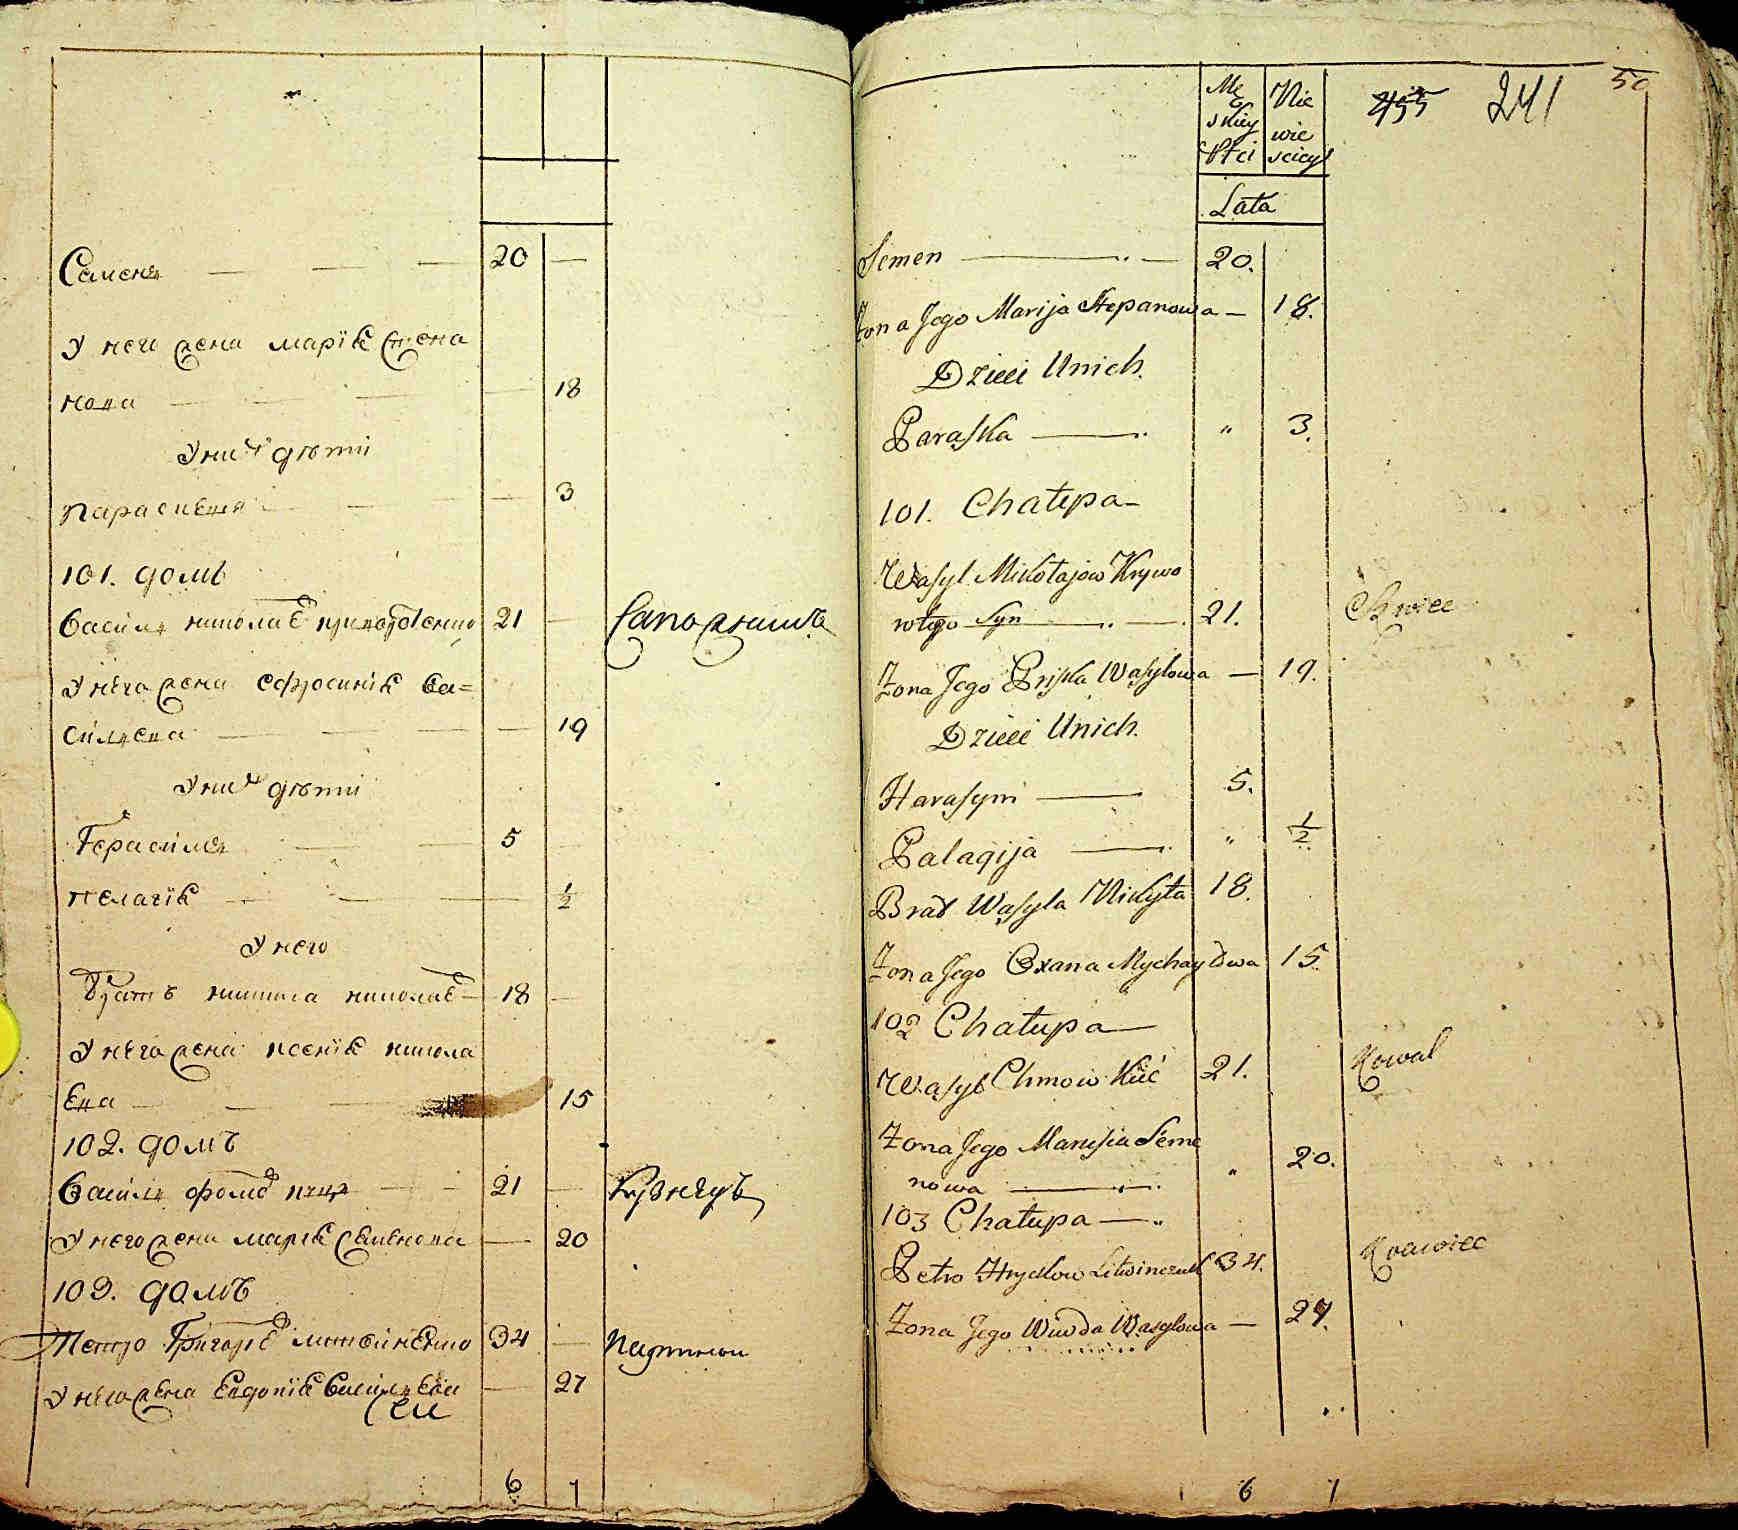 Семенъ 20 —
У него жена Марія Степа
нова — 18
У нихъ дѣти
Параскевія — 3
101. домъ
Василь Николаевъ 21 — Сапожникъ
У него жена Ефросинія Ва=
сильева — 19
У нихъ дѣти
Герасимъ 5
Пелагія ½
У него
братъ Никита Николаевъ 18 —
У него жена Ксенія Михайла
ева 15
102. домъ
Василь Фомовъ Куцъ 21 — Кузнецъ
У него жена Марія Семенова — 20
103. домъ
Петро Григорьевъ Литвиненко 34 — Портной
У него жена Евдокія Васильева — 27
6 7
Mę Nie 455 241 50
skiey wie
Płci scieyt
Lata
Semen — 20.
Żona Jego Marija Stepanowa — 18.
Dzieci Unich.
Paraska — " 3.
101. Chałupa
Wasyl Mikołajow Krywo
Syn — 21. Szwiec
Żona Jego Pryska Wasylowa — 19.
Dzieci Unich.
Harasym — 5.
Palagija — " ½
Brat Wasyla Nikyta 18.
Żona Jego Oxana Mychayłowa 15.
102 Chałupa
Wasyl Chmow Kuć 21. Kowal
Żona Jego Marysia Seme
nowa — " 20.
103 Chałupa
Petro Hryckow Litwinczuk 34. Krawiec
Żona Jego Wiwda Wasylowa — 27.
6 7